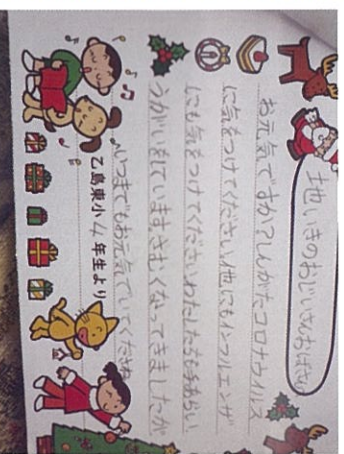 地いきのおじいさんおばさんへ
お元気ですか？しんがたコロナウイルス
に気をつけてください。他にもインフルエンザ
にも気をつけてください。わたしたちも手あらい
うがいをしています。さむくなってきましたが
いつまでもお元気でいてくださいね
乙島東小4年生より